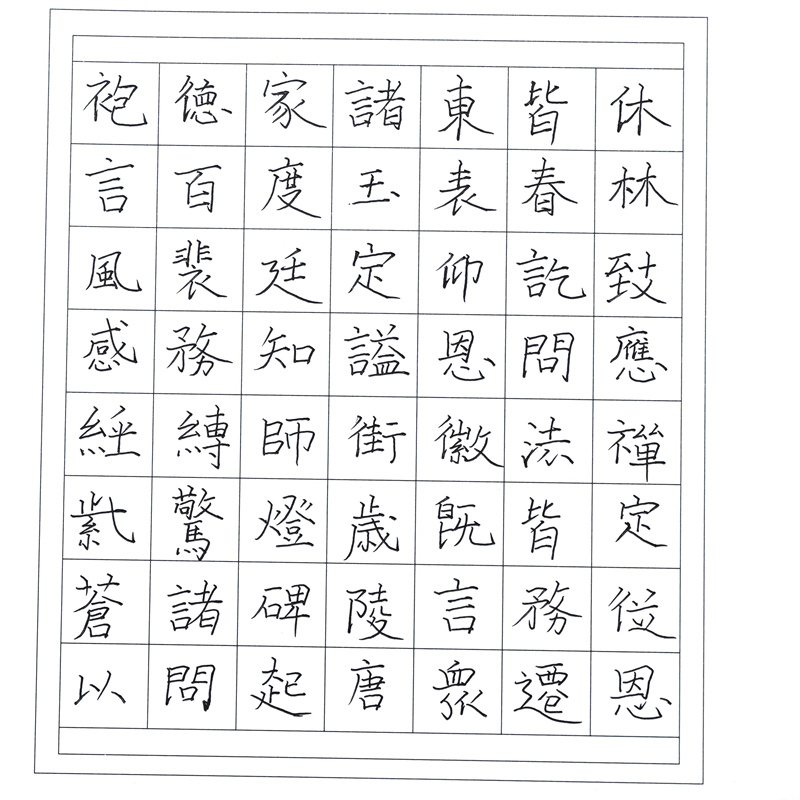 袍德家諸東皆休
言百度玉表春林
風裴廷定仰訖致
感務知謚恩問應
經縛師街徽法禪
紫驚燈歳既皆定
蒼諸碑陵言務位
以問起唐眾遷恩